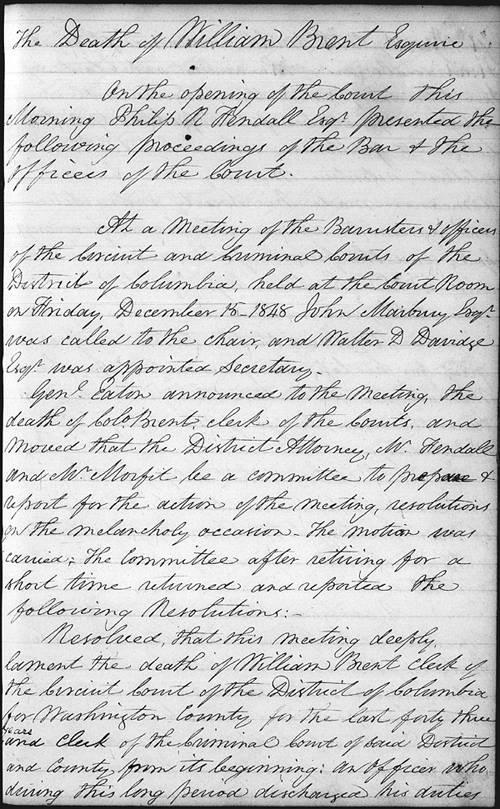 The Death of William Brent Esquire
On the opening of the Court this
Morning Philip R Fendall Esqr. presented the
following proceedings of the Bar & the
officers of the Court.
At a Meeting of the Barristers & officers
of the Circuit and Criminal Courts of the
District of Columbia, held at the Court Room
on Friday, December 15-1848 John Marbury Esqr.
was called to the chair, and Walter D Davidge
Esqr. was appointed Secretary.
Genl. Eaton announced to the Meeting, the
death of Colo Brent, clerk of the Courts, and
moved that the District Attorney, Mr. Fendall
and Mr Morfit be a committee to prepare &
report for the action of the meeting, resolutions
on the melancholy occasion - The motion was
carried; The Committee after retiring for a
short time returned and reported the
following Resolutions:-
Resolved, that this meeting deeply
lament the death of William Brent Clerk of
the Circuit Court of the District of Columbia
for Washington County, for the last forty three
years
and Clerk of the Criminal Court of said District
and County, from its beginning: an officer who,
during this long period discharged his duties